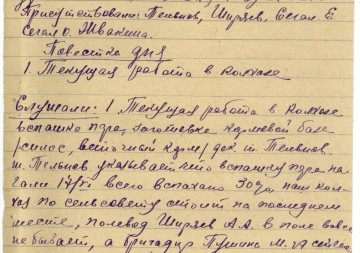 Присутствовали: Тельнов, Ширяев, Сегал Е
Сегал О. Жвакина.
Повестка дня
1. Текущая работа в колхозе
Слушали: 1. Текущая работа в колхозе
вспашка пара, заготовка кормовой базы
/силос, веточный корм/ док. т. Тельнов.
т. Тельнов указывает что вспашку пара на-
чали 17/VI всего вспахано 30 га, наш кол-
хоз по сельсовету стоит на последнем
месте, полевод Ширяев А.А. в поле вовсе
не бывает, а бригадир Пушкин М.